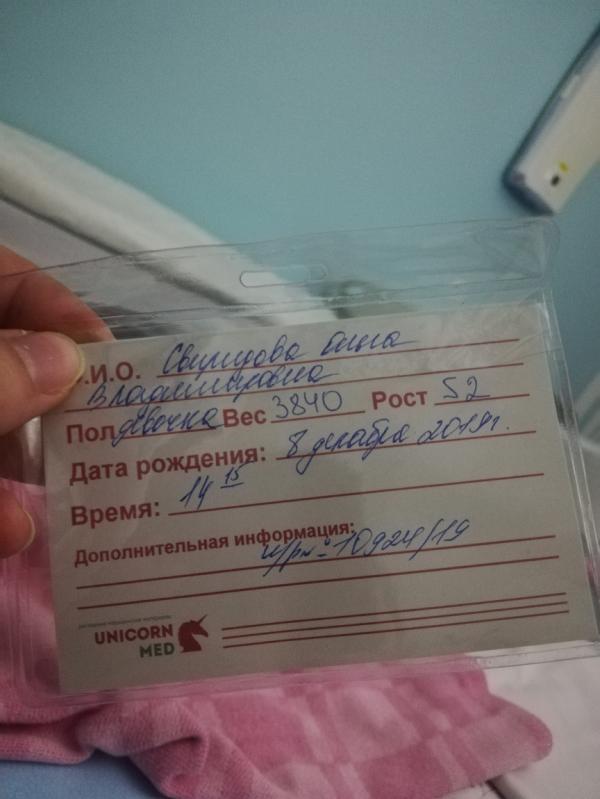 Ф.И.О. Свиридова
Владимировна
Пол девочка Вес 3840 Рост 52
Дата рождения: 8 декабря 2019г.
Время: 14 15
Дополнительная информация:
и/р № 10924/19
UNICORN
MED